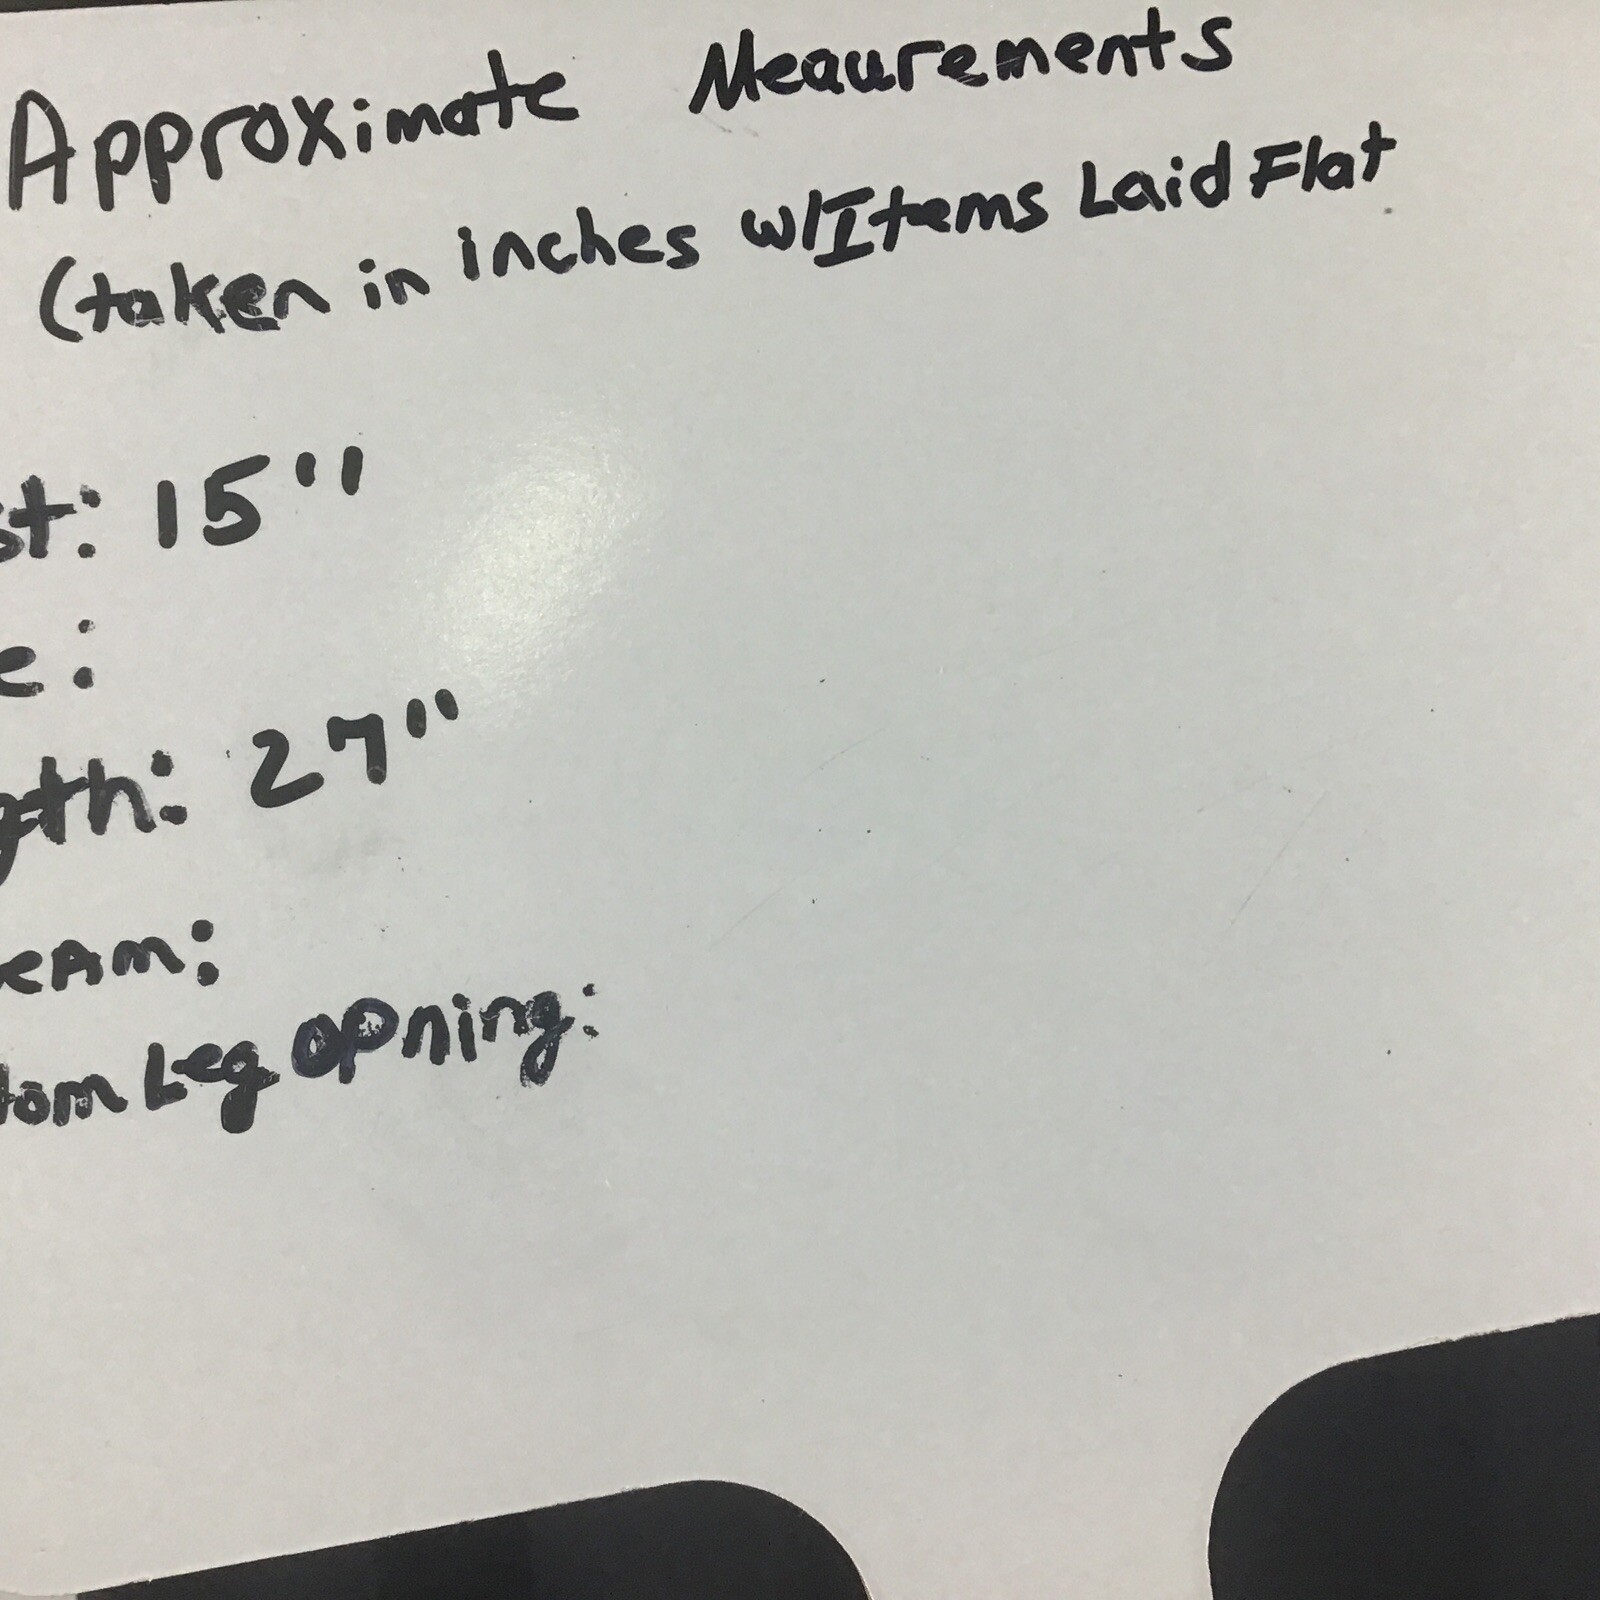 Approximate Meaurements
(taken in inches w/Items Laid Flat
st: 15"
e:
gth: 27"
eAm:
tom Leg opning: